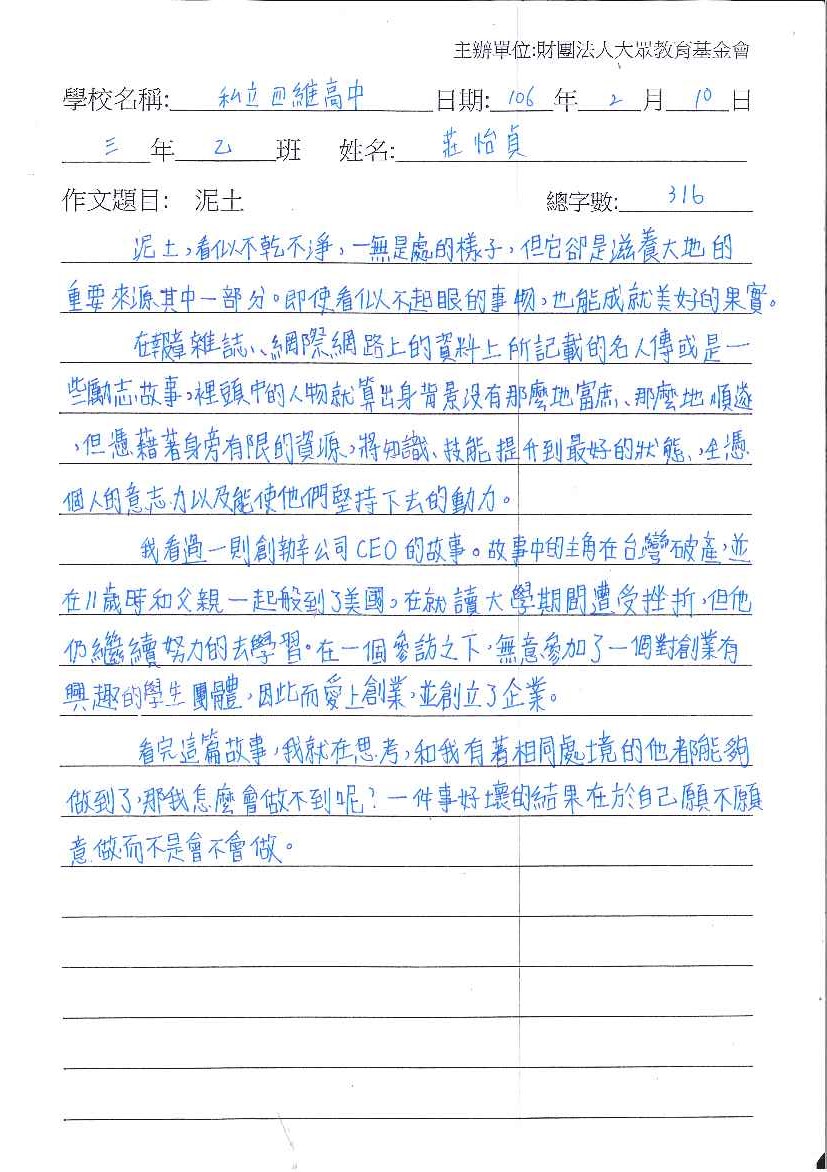 主辦單位:財團法人大眾教育基金會
學校名稱: 私立四維高中 日期: 106 年 2 月 10 日
三 年 乙 班 姓名: 莊怡貞
作文題目: 泥土 總字數: 316
泥土,看似不乾不淨,一無是處的樣子,但它卻是滋養大地的
重要來源其中一部分。即使看似不起眼的事物,也能成就美好的果實。
在報章雜誌、網際網路上的資料上所記載的名人傳或是一
些勵志故事,裡頭中的人物就算出身背景沒有那麼地富庶、那麼地順遂
,但憑藉著身旁有限的資源,將知識、技能提升到最好的狀態,全憑
個人的意志力以及能使他們堅持下去的動力。
我看過一則創辦公司CEO的故事。故事中的主角在台灣破產,並
在11歲時和父親一起般到了美國,在就讀大學期間遭受挫折,但他
仍繼續努力的去學習。在一個參訪之下,無意參加了一個對創業有
興趣的學生團體,因此而愛上創業,並創立了企業。
看完這篇故事,我就在思考,和我有著相同處境的他都能夠
做到了,那我怎麼會做不到呢?一件事好壞的結果在於自己願不願
意做而不是會不會做。